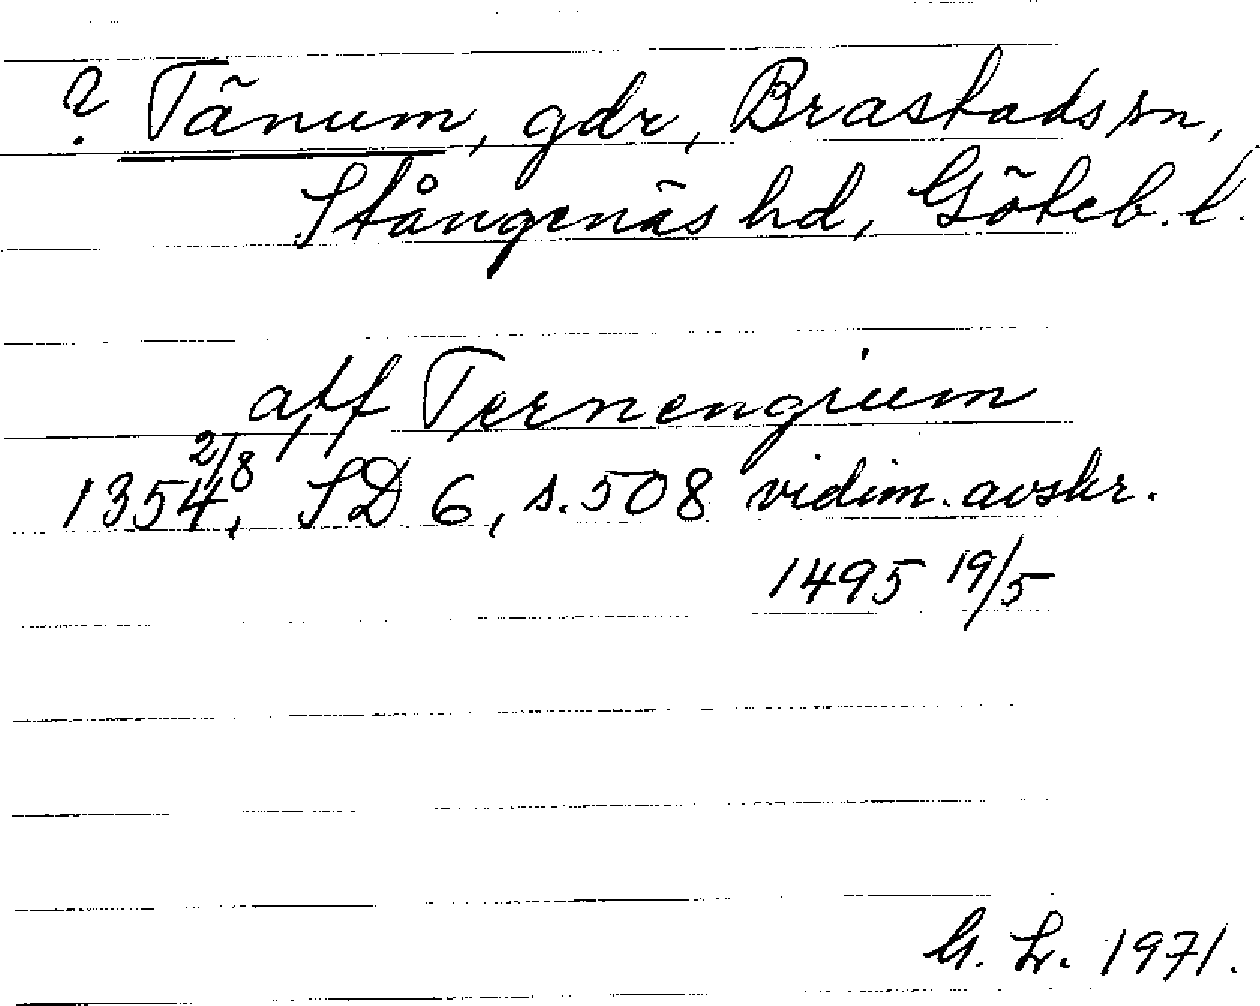 ? Tänum, gdr, Brastads sn,
Stångenäs hd, Göteb. l.
aff Ternengium
1354 2/8, SD 6, s. 508 vidim. avskr.
1495 19/5
G. Lr. 1971.